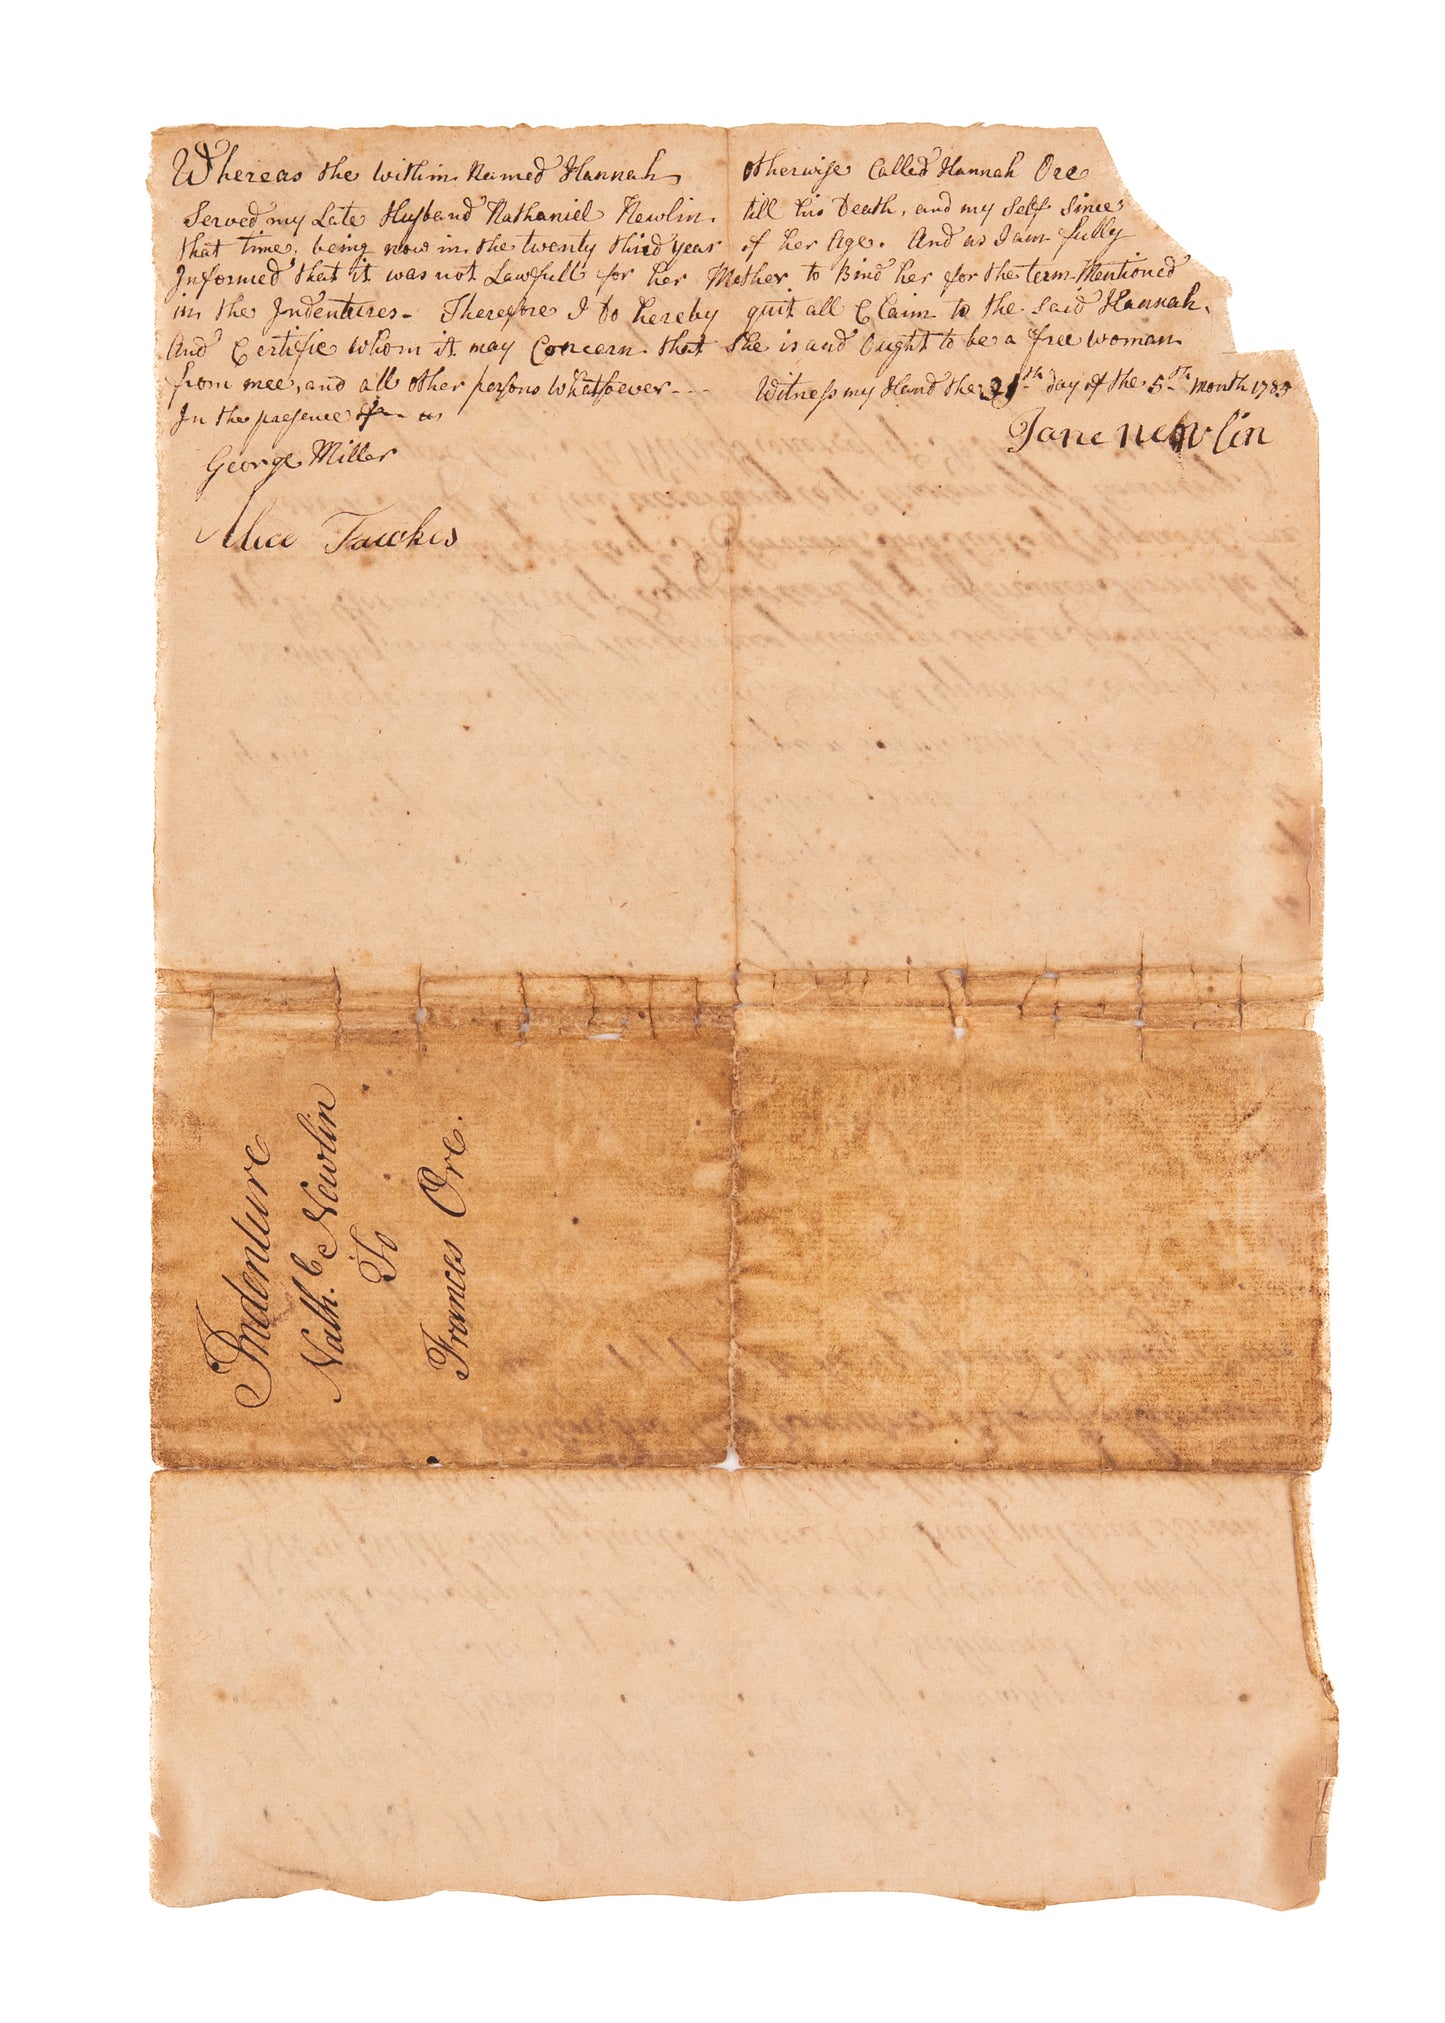 Whereas the within Named Hannah otherwise Called Hannah Ore
Served my Late Husband Nathaniel Newlin till his Death, and my Self Since
that time, being now in the twenty third year of her Age. And as I am fully
Informed that it was not Lawfull for her Mother to Bind her for the term Mentioned
in the Indentures- Therefore I Do hereby quit all Claim to the said Hannah,
And Certifie whom it may Concern that She is and Ought to be a free woman
from mee, and all other persons Whatsoever--- Witness my Hand the day of the 5th month 1783
In the presence of us
Jane Newlin
George Miller
Alice
Indenture
Nath.l Newlin
To
Frances Ore.